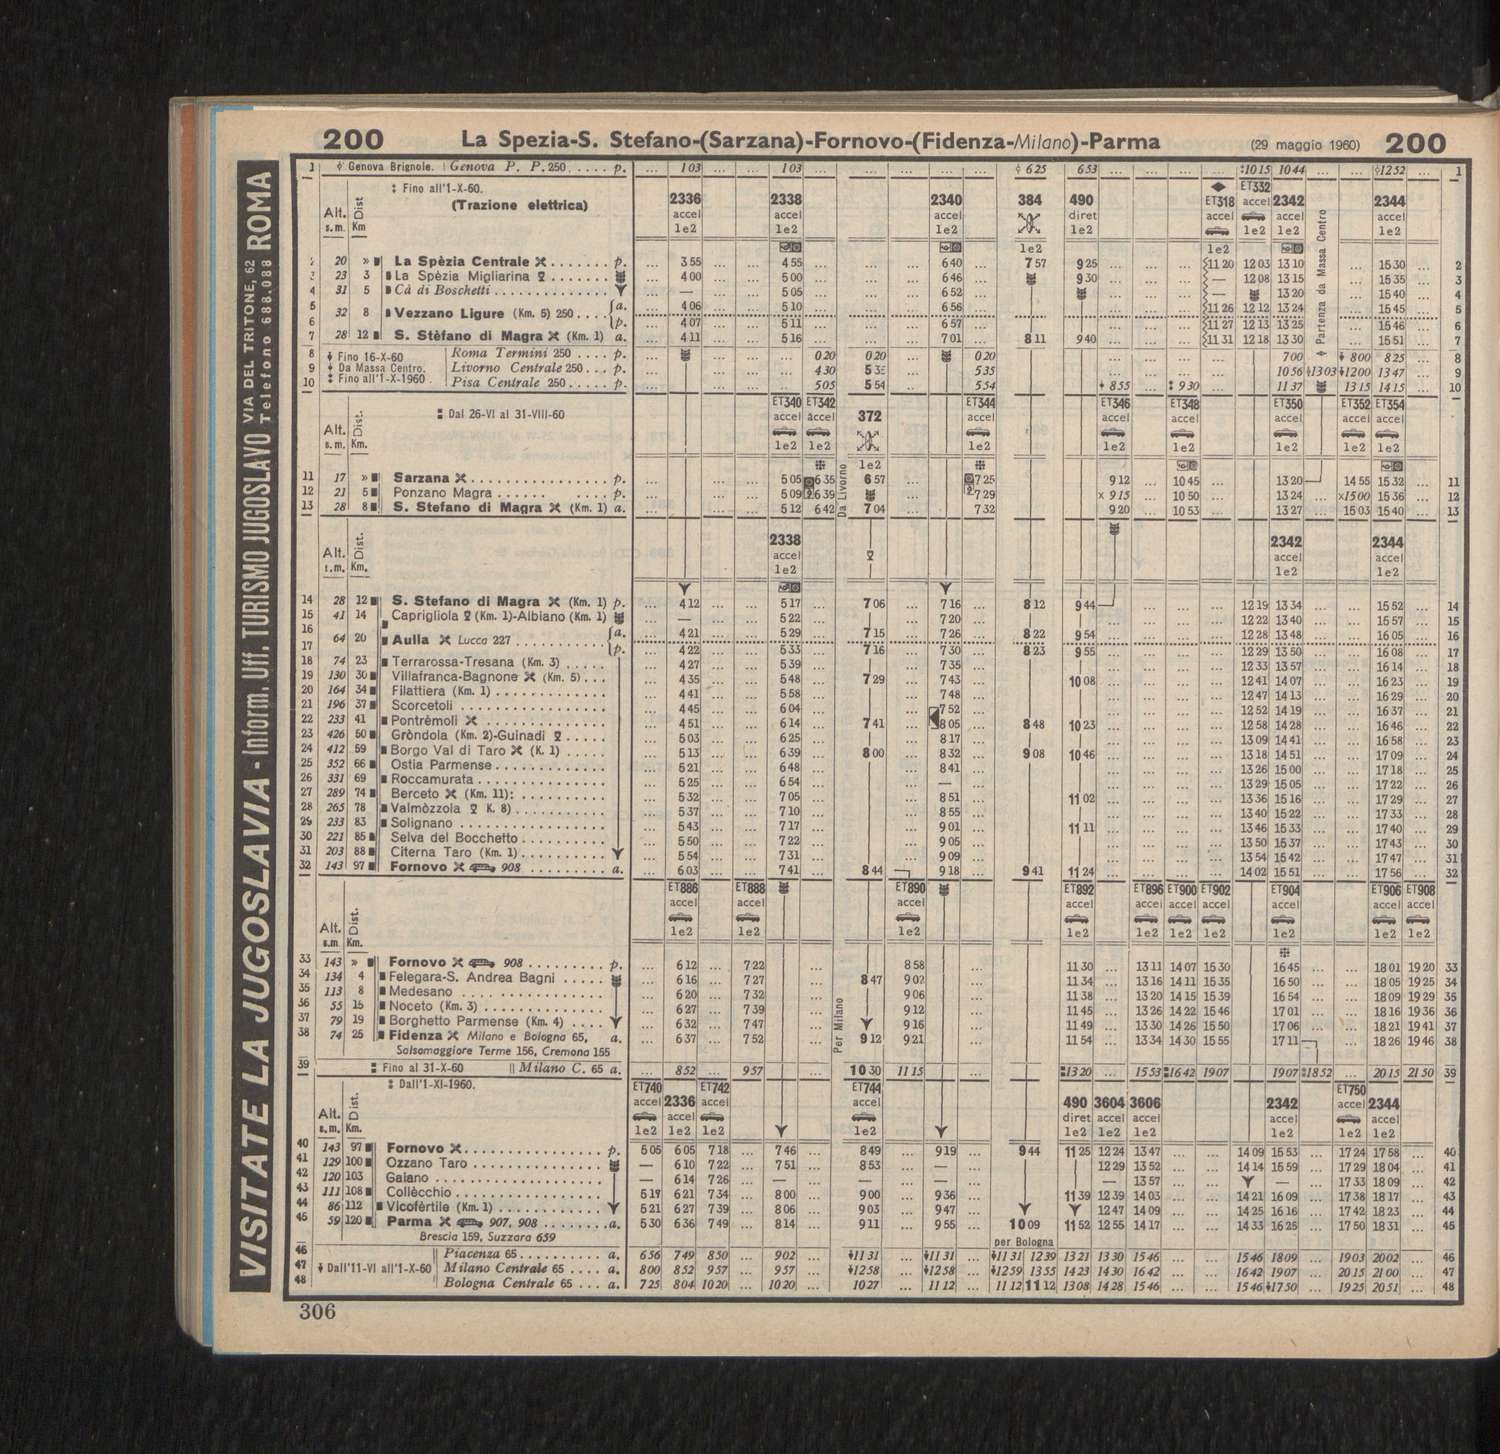 200 La Spezia-S. Stefano-(Sarzana)-Fornovo-(Fidenza-Milano)-Parma (29 maggio 1960) 200
VISITATE LA JUGOSLAVIA - Inform. Uff. TURISMO JUGOSLAVO VIA DEL TRITONE, 62 Telefono 688.088 ROMA
1 Genova Brignole. Genova P. P. 250 ..... p. ... 1 03 ... ... 1 03 ... ... ... ... ... 6 25 6 53 ... ... ... ... 10 15 10 44 ... ... 12 52 ... 1
Fino all'1-X-60.
(Trazione elettrica)
Alt. s.m. Dist Km
2336 2338 2340 384 490 ET318 ET332 2342 2344
accel accel accel diret accel accel accel accel
1e2 1e2 1e2 1e2 1e2 1e2 1e2 1e2 1e2
Partenza da Massa Centro
2 20 » La Spèzia Centrale ....... p. ... 3 55 ... ... 4 55 ... ... ... 6 40 ... 7 57 9 25 ... ... ... 11 20 12 03 13 10 ... 15 30 ... 2
3 23 3 La Spèzia Migliarina ...... ... 4 00 ... ... 5 00 ... ... ... 6 46 ... 9 30 ... ... ... — 12 08 13 15 ... 15 35 ... 3
4 31 5 Cà di Boschetti .............. ... — ... ... 5 05 ... ... ... 6 52 ... ... ... ... — 13 20 ... 15 40 ... 4
5 32 8 Vezzano Ligure (Km. 5) 250 .... a. ... 4 06 ... ... 5 10 ... ... ... 6 56 ... ... ... ... 11 26 12 12 13 24 ... 15 45 ... 5
6 p. 4 07 5 11 6 57 11 27 12 13 13 25 15 46 6
7 28 12 S. Stèfano di Magra (Km. 1) a. ... 4 11 ... ... 5 16 ... ... ... 7 01 ... 8 11 9 40 ... ... ... 11 31 12 18 13 30 ... 15 51 ... 7
8 Fino 16-X-60 Roma Termini 250 .... p. ... ... ... ... 0 20 0 20 ... 0 20 ... ... ... ... 7 00 8 00 8 25 ... 8
9 Da Massa Centro. Livorno Centrale 250 ... p. ... ... ... ... 4 30 ... 5 35 ... ... ... ... 10 56 13 03 12 00 13 47 ... 9
10 Fino all'1-X-1960. Pisa Centrale 250 ..... p. ... ... ... ... 5 05 5 54 ... 5 54 8 55 ... 9 30 ... ... 11 37 13 15 14 15 ... 10
Dal 26-VI al 31-VIII-60
Alt. s.m. Dist. Km.
ET340 ET342 372 ET344 ET346 ET348 ET350 ET352 ET354
accel accel accel accel accel accel accel accel
1e2 1e2 1e2 1e2 1e2 1e2 1e2 1e2 1e2
Da Livorno
11 17 » Sarzana ............... p. ... ... ... 5 05 6 35 6 57 ... ... 7 25 9 12 ... 10 45 ... 13 20 14 55 15 32 ... 11
12 21 5 Ponzano Magra ...... p. ... ... ... 5 09 6 39 ... ... 7 29 x 9 15 ... 10 50 ... 13 24 ... x15 00 15 36 ... 12
13 28 8 S. Stefano di Magra (Km. 1) a. ... ... ... 5 12 6 42 7 04 ... 7 32 9 20 ... 10 53 ... 13 27 ... 15 03 15 40 ... 13
Alt. s.m. Dist. Km.
2338 2342 2344
accel accel accel
1e2 1e2 1e2
14 28 12 S. Stefano di Magra (Km. 1) p. ... 4 12 ... ... 5 17 ... 7 06 ... 7 16 ... 8 12 9 44 ... ... ... 12 19 13 34 ... ... 15 52 ... 14
15 41 14 Caprigliola (Km. 1)-Albiano (Km. 1) ... — ... ... 5 22 ... ... 7 20 ... ... ... ... 12 22 13 40 ... ... 15 57 ... 15
16 64 20 Aulla Lucca 227 ........... a. ... 4 21 ... ... 5 29 ... 7 15 ... 7 26 ... 8 22 9 54 ... ... ... 12 28 13 48 ... ... 16 05 ... 16
17 p. ... 4 22 ... ... 5 33 ... 7 16 ... 7 30 ... 8 23 9 55 ... ... ... 12 29 13 50 ... ... 16 08 ... 17
18 74 23 Terrarossa-Tresana (Km. 3) ..... ... 4 27 ... ... 5 39 ... ... 7 35 ... ... ... ... 12 33 13 57 ... ... 16 14 ... 18
19 130 30 Villafranca-Bagnone (Km. 5) ... ... 4 35 ... ... 5 48 ... 7 29 ... 7 43 ... 10 08 ... ... ... 12 41 14 07 ... ... 16 23 ... 19
20 164 34 Filattiera (Km. 1) ............ ... 4 41 ... ... 5 58 ... ... 7 48 ... ... ... ... 12 47 14 13 ... ... 16 29 ... 20
21 196 37 Scorcetoli ................ ... 4 45 ... ... 6 04 ... ... 7 52 ... ... ... ... 12 52 14 19 ... ... 16 37 ... 21
22 233 41 Pontrèmoli ............. ... 4 51 ... ... 6 14 ... 7 41 ... 8 05 ... 8 48 10 23 ... ... ... 12 58 14 28 ... ... 16 46 ... 22
23 426 50 Gròndola (Km. 2)-Guinadi ..... ... 5 03 ... ... 6 25 ... ... 8 17 ... ... ... ... 13 09 14 41 ... ... 16 58 ... 23
24 412 59 Borgo Val di Taro (K. 1) ..... ... 5 13 ... ... 6 39 ... 8 00 ... 8 32 ... 9 08 10 46 ... ... ... 13 18 14 51 ... ... 17 09 ... 24
25 352 66 Ostia Parmense ............. ... 5 21 ... ... 6 48 ... ... 8 41 ... ... ... ... 13 26 15 00 ... ... 17 18 ... 25
26 331 69 Roccamurata .............. ... 5 25 ... ... 6 54 ... ... — ... ... ... ... 13 29 15 05 ... ... 17 22 ... 26
27 289 74 Berceto (Km. 11): .......... ... 5 32 ... ... 7 05 ... ... 8 51 ... 11 02 ... ... ... 13 36 15 16 ... ... 17 29 ... 27
28 265 78 Valmòzzola K. 8) .......... ... 5 37 ... ... 7 10 ... ... 8 55 ... ... ... ... 13 40 15 22 ... ... 17 33 ... 28
29 233 83 Solignano ................ ... 5 43 ... ... 7 17 ... ... 9 01 ... 11 11 ... ... ... 13 46 15 33 ... ... 17 40 ... 29
30 221 85 Selva del Bocchetto .......... ... 5 50 ... ... 7 22 ... ... 9 05 ... ... ... ... 13 50 15 37 ... ... 17 43 ... 30
31 203 88 Citerna Taro (Km. 1) .......... ... 5 54 ... ... 7 31 ... ... 9 09 ... ... ... ... 13 54 15 42 ... ... 17 47 ... 31
32 143 97 Fornovo 908 ......... a. ... 6 03 ... ... 7 41 ... 8 44 9 18 ... 9 41 11 24 ... ... ... 14 02 15 51 ... ... 17 56 ... 32
Alt. s.m. Dist. Km.
ET886 ET888 ET890 ET892 ET896 ET900 ET902 ET904 ET906 ET908
accel accel accel accel accel accel accel accel accel accel
1e2 1e2 1e2 1e2 1e2 1e2 1e2 1e2 1e2 1e2
Per Milano
33 143 » Fornovo 908 ......... p. ... 6 12 ... 7 22 ... 8 58 ... 11 30 ... 13 11 14 07 15 30 16 45 ... ... 18 01 19 20 33
34 134 4 Felegara-S. Andrea Bagni ..... ... 6 16 ... 7 27 ... 8 47 9 02 ... 11 34 ... 13 16 14 11 15 35 16 50 ... ... 18 05 19 25 34
35 113 8 Medesano ................ ... 6 20 ... 7 32 ... 9 06 ... 11 38 ... 13 20 14 15 15 39 16 54 ... ... 18 09 19 29 35
36 55 15 Noceto (Km. 3) ............. ... 6 27 ... 7 39 ... 9 12 ... 11 45 ... 13 26 14 22 15 46 17 01 ... ... 18 16 19 36 36
37 79 19 Borghetto Parmense (Km. 4) .... ... 6 32 ... 7 47 ... 9 16 ... 11 49 ... 13 30 14 26 15 50 17 06 ... ... 18 21 19 41 37
38 74 25 Fidenza Milano e Bologna 65, a. ... 6 37 ... 7 52 ... 9 12 9 21 ... 11 54 ... 13 34 14 30 15 55 17 11 ... 18 26 19 46 38
Salsomaggiore Terme 156, Cremona 155
39 Fino al 31-X-60 Milano C. 65 a. ... 8 52 ... 9 57 ... 10 30 11 15 ... ... 13 20 ... 15 53 16 42 19 07 19 07 18 52 ... 20 15 21 50 39
Dall'1-XI-1960.
Alt. s.m. Dist. Km.
ET740 2336 ET742 ET744 490 3604 3606 2342 ET750 2344
accel accel accel accel diret accel accel accel accel accel
1e2 1e2 1e2 1e2 1e2 1e2 1e2 1e2 1e2 1e2
40 143 97 Fornovo ................. p. 5 05 6 05 7 18 ... 7 46 ... 8 49 ... 9 19 ... 9 44 11 25 12 24 13 47 ... ... 14 09 15 53 ... 17 24 17 58 ... 40
41 129 100 Ozzano Taro .............. — 6 10 7 22 ... 7 51 ... 8 53 ... — ... 12 29 13 52 ... ... 14 14 15 59 ... 17 29 18 04 ... 41
42 120 103 Gaiano ................... — 6 14 7 26 ... — ... — ... — ... — — 13 57 ... ... — ... 17 33 18 09 ... 42
43 111 108 Collècchio ................ 5 17 6 21 7 34 ... 8 00 ... 9 00 ... 9 36 ... 11 39 12 39 14 03 ... ... 14 21 16 09 ... 17 38 18 17 ... 43
44 86 112 Vicofèrtile (Km. 1) ............ 5 21 6 27 7 39 ... 8 06 ... 9 03 ... 9 47 ... 12 47 14 09 ... ... 14 25 16 16 ... 17 42 18 23 ... 44
45 59 120 Parma 907, 908 ........ a. 5 30 6 36 7 49 ... 8 14 ... 9 11 ... 9 55 ... 10 09 11 52 12 55 14 17 ... ... 14 33 16 25 ... 17 50 18 31 ... 45
Brescia 159, Suzzara 659
per Bologna
46 Piacenza 65 .......... a. 6 56 7 49 8 50 ... 9 02 ... 11 31 ... 11 31 ... 11 31 12 39 13 21 13 30 15 46 ... ... 15 46 18 09 ... 19 03 20 02 ... 46
47 Dall'11-VI all'1-X-60 Milano Centrale 65 .... a. 8 00 8 52 9 57 ... 9 57 ... 12 58 ... 12 58 ... 12 59 13 55 14 23 14 30 16 42 ... ... 16 42 19 07 ... 20 15 21 00 ... 47
48 Bologna Centrale 65 ... a. 7 25 8 04 10 20 ... 10 20 ... 10 27 ... 11 12 ... 11 12 11 12 13 08 14 28 15 46 ... ... 15 46 17 50 ... 19 25 20 51 ... 48
306